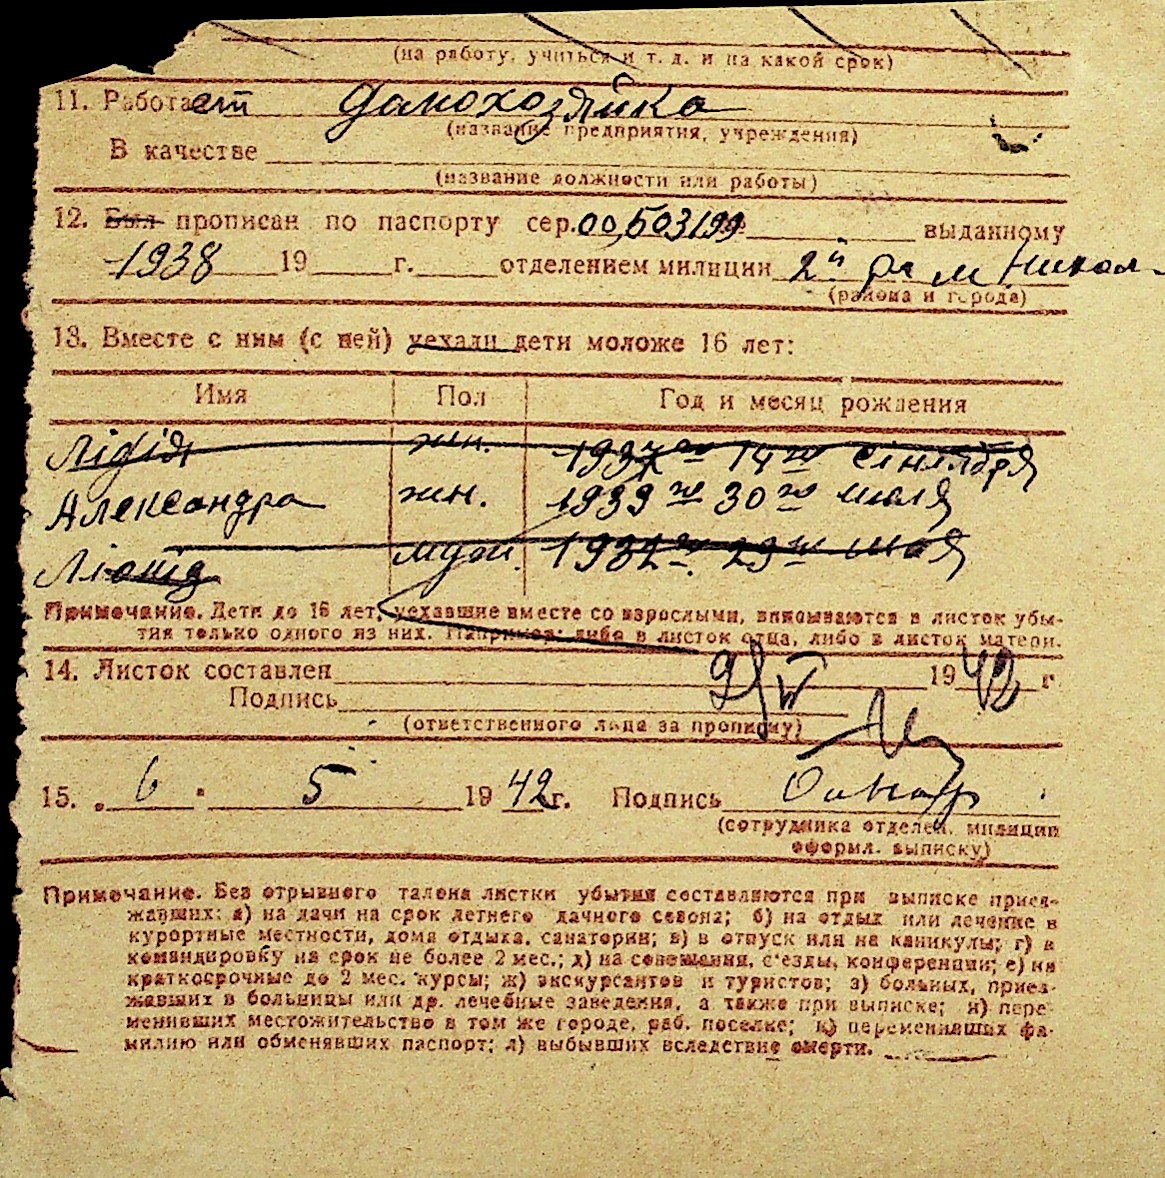 (на работу, учиться и т. д. и на какой срок)
11. Работает домохозяйка
(название предприятия, учреждения)
В качестве
(название должности или работы)
12. Был прописан по паспорту сер. 00,503199 выданному
1938 19 г. отделением милиции 2й ра м Никол.
(района и города)
13. Вместе с ним (с ней) уехали дети моложе 16 лет:
Имя Пол Год и месяц рождения
Лідія жин. 1937 го 14 го сінтября
Александра жин. 1939 го 30 го июля
Ліонід муж. 1932 го 29 го мая
Примечание. Дети до 16 лет, уехавшие вместе со взрослыми, вписываются в листок убы-
тия только одного из них. Например: либо в листок отца, либо в листок матери.
14. Листок составлен 9/IV 1942 г
Подпись
(ответственного лица за прописку)
15. „ 6 " 5 1942 г. Подпись
(сотрудника отделен. милиции
оформл. выписку)
Примечание. Без отрывного талона листки убытия составляются при выписке приез-
жавших: а) на дачи на срок летнего дачного сезона; б) на отдых или лечение в
курортные местности, дома отдыха, санатории; в) в отпуск или на каникулы; г) в
командировку на срок не более 2 мес.; д) на совещания, с'езды, конференции; е) на
краткосрочные до 2 мес. курсы; ж) экскурсантов и туристов; з) больных, приез-
жавших в больницы или др. лечебные заведения, а также при выписке; и) пере-
менивших местожительство в том же городе, раб. поселке; к) переменивших фа-
милию или обменявших паспорт; л) выбывших вследствие смерти.